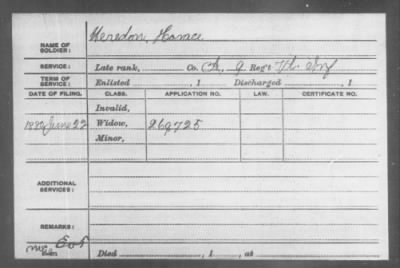 NAME OF SOLDIER: Meredon, Horace
SERVICE: Late rank, Co. A, 9 Reg't Vt. Inf
TERM OF SERVICE: Enlisted , 1 Discharged , 1
DATE OF FILING. CLASS. APPLICATION NO. LAW. CERTIFICATE NO.
Invalid,
June 22 Widow, 269725
Minor,
ADDITIONAL SERVICES:
REMARKS:
Died , 1 , at